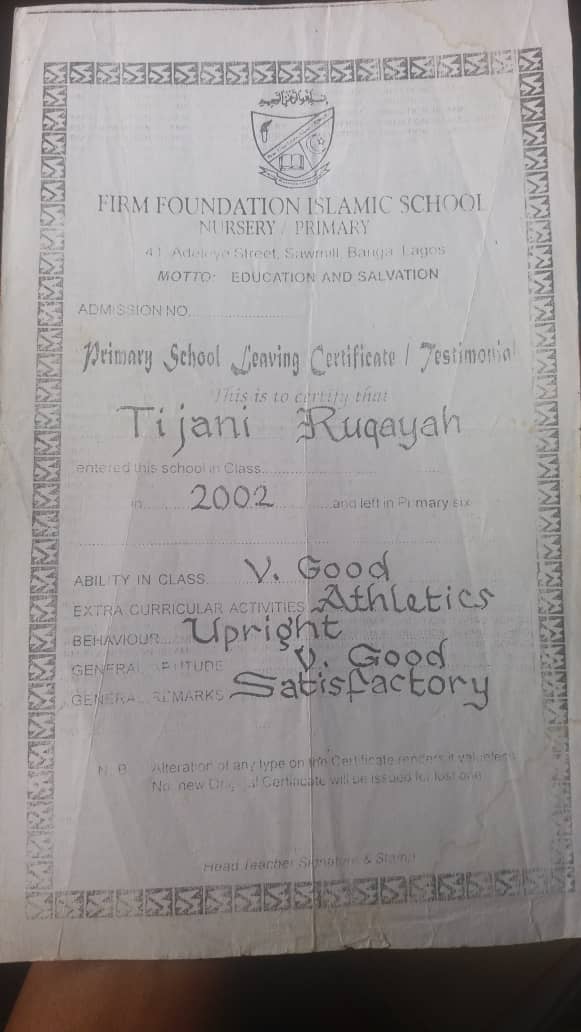 FIRM FOUNDATION ISLAMIC SCHOOL
NURSERY / PRIMARY
41, Adeleye Street, Sawmill, Bariga, Lagos
MOTTO: EDUCATION AND SALVATION
ADMISSION NO.
Primary School Leaving Certificate / Testimonial
This is to certify that
Tijani Ruqayah
entered this school in Class
in 2002 and left in Primary six
ABILITY IN CLASS V. Good
EXTRA CURRICULAR ACTIVITIES Athletics
BEHAVIOUR Upright
GENERAL APTITUDE V. Good
GENERAL REMARKS Satisfactory
N. B. Alteration of any type on the Certificate renders it valueless
No new Original Certificate will be issued for lost one
Head Teacher Signature & Stamp